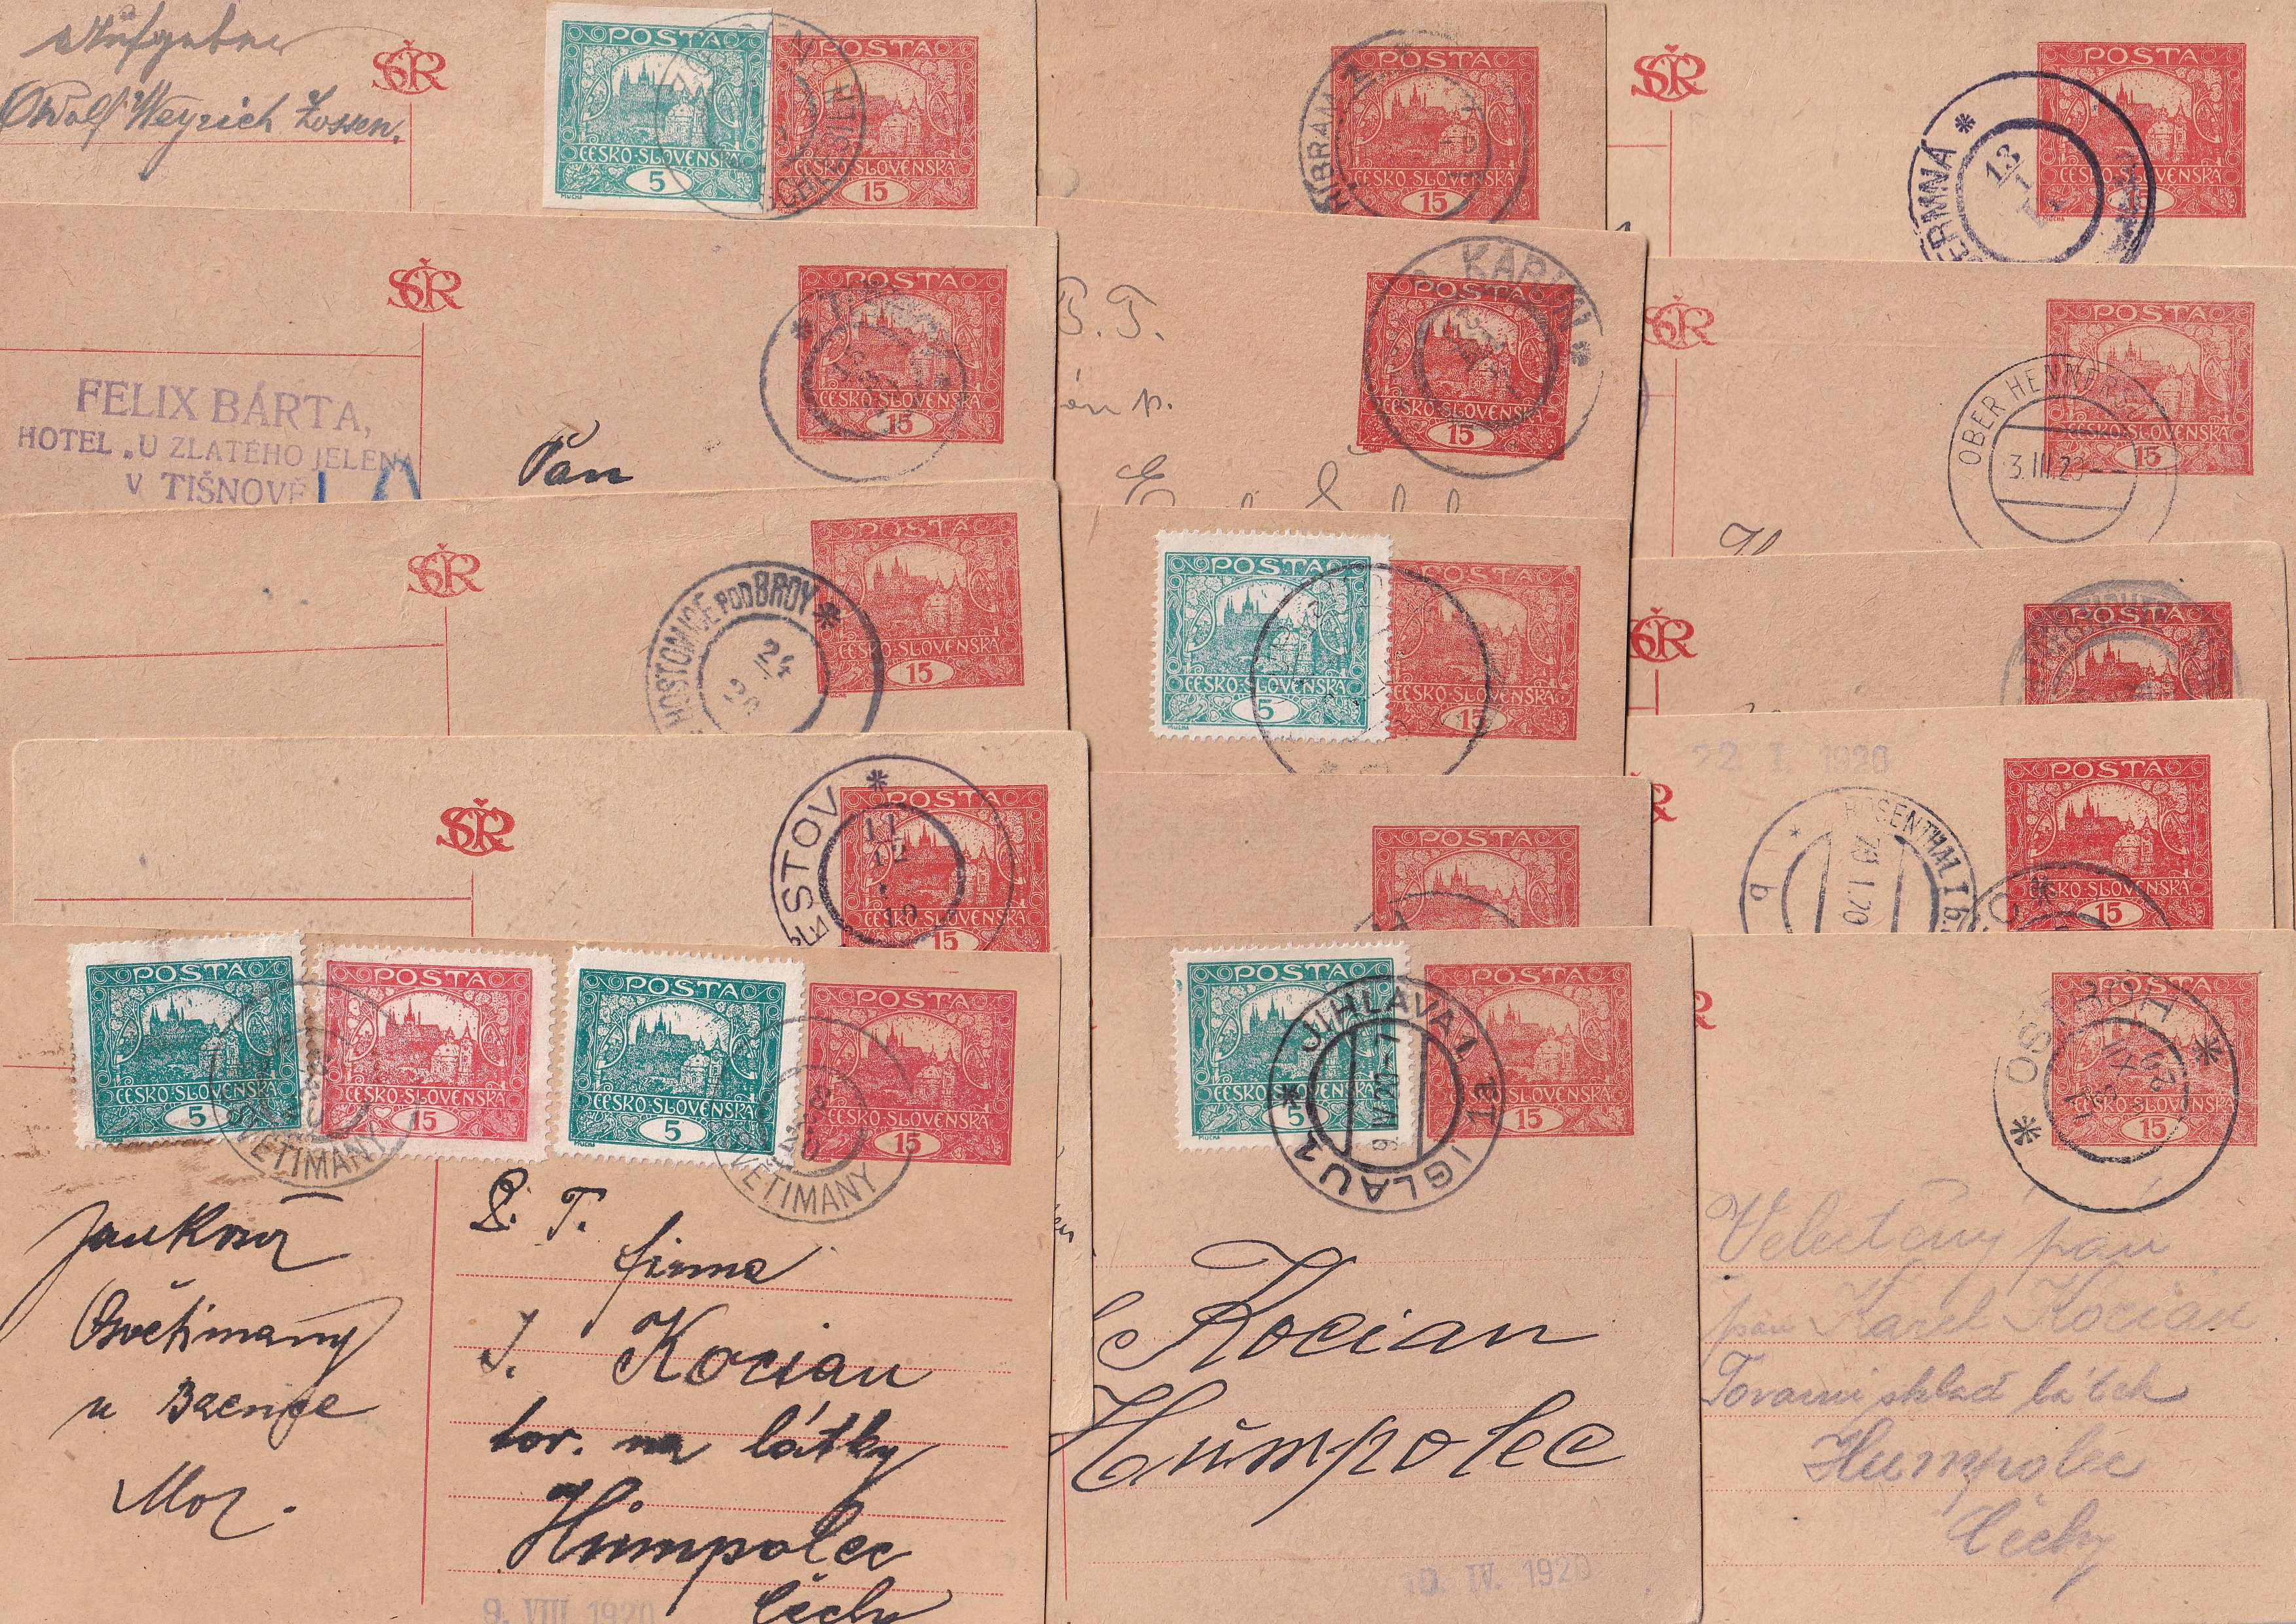 Aufgeber
Weyrich
ČSR
POSTA
ČESKO-SLOVENSKÁ
5
POSTA
ČESKO-SLOVENSKÁ
15
POSTA
ČESKO-SLOVENSKÁ
15
ČSR
POSTA
ČESKO-SLOVENSKÁ
15
ERMNÁ
13
ČSR
POSTA
ČESKO-SLOVENSKÁ
15
FELIX BÁRTA,
HOTEL „U ZLATÉHO JELENA
V TIŠNOVĚ
Pan
P. T.
KARLÍN
POSTA
ČESKO-SLOVENSKÁ
15
ČSR
POSTA
ČESKO-SLOVENSKÁ
15
OBER HENNERSD
3.III.20
ČSR
HOSTOMICE POD BRDY
24
POSTA
ČESKO-SLOVENSKÁ
15
POSTA
ČESKO-SLOVENSKÁ
5
POSTA
ČESKO-SLOVENSKÁ
15
ČSR
POSTA
22. I. 1920
ROSENTHAL I b.
20.I.20
b
POSTA
ČESKO-SLOVENSKÁ
15
ČSR
ESTOV
11
12
19
POSTA
ČESKO-SLOVENSKÁ
15
POSTA
POSTA
ČESKO-SLOVENSKÁ
5
POSTA
ČESKO-SLOVENSKÁ
15
POSTA
ČESKO-SLOVENSKÁ
5
POSTA
ČESKO-SLOVENSKÁ
15
OSVĚTIMANY
OSVĚTIMANY
Osvětimany
u Bzence
Mor.
P. T.
firma
J. Kocian
tov. na látky
Humpolec
Čechy
9. VIII 1920
POSTA
ČESKO-SLOVENSKÁ
5
POSTA
ČESKO-SLOVENSKÁ
15
JIHLAVA 1
1a
IGLAU 1
9.IV.20-7
Kocian
Humpolec
10. IV. 1920
POSTA
ČESKO-SLOVENSKÁ
15
OSTROH
Velectěný pán
pan Karel Kocian
Tovarní sklad látek
Humpolec
Čechy